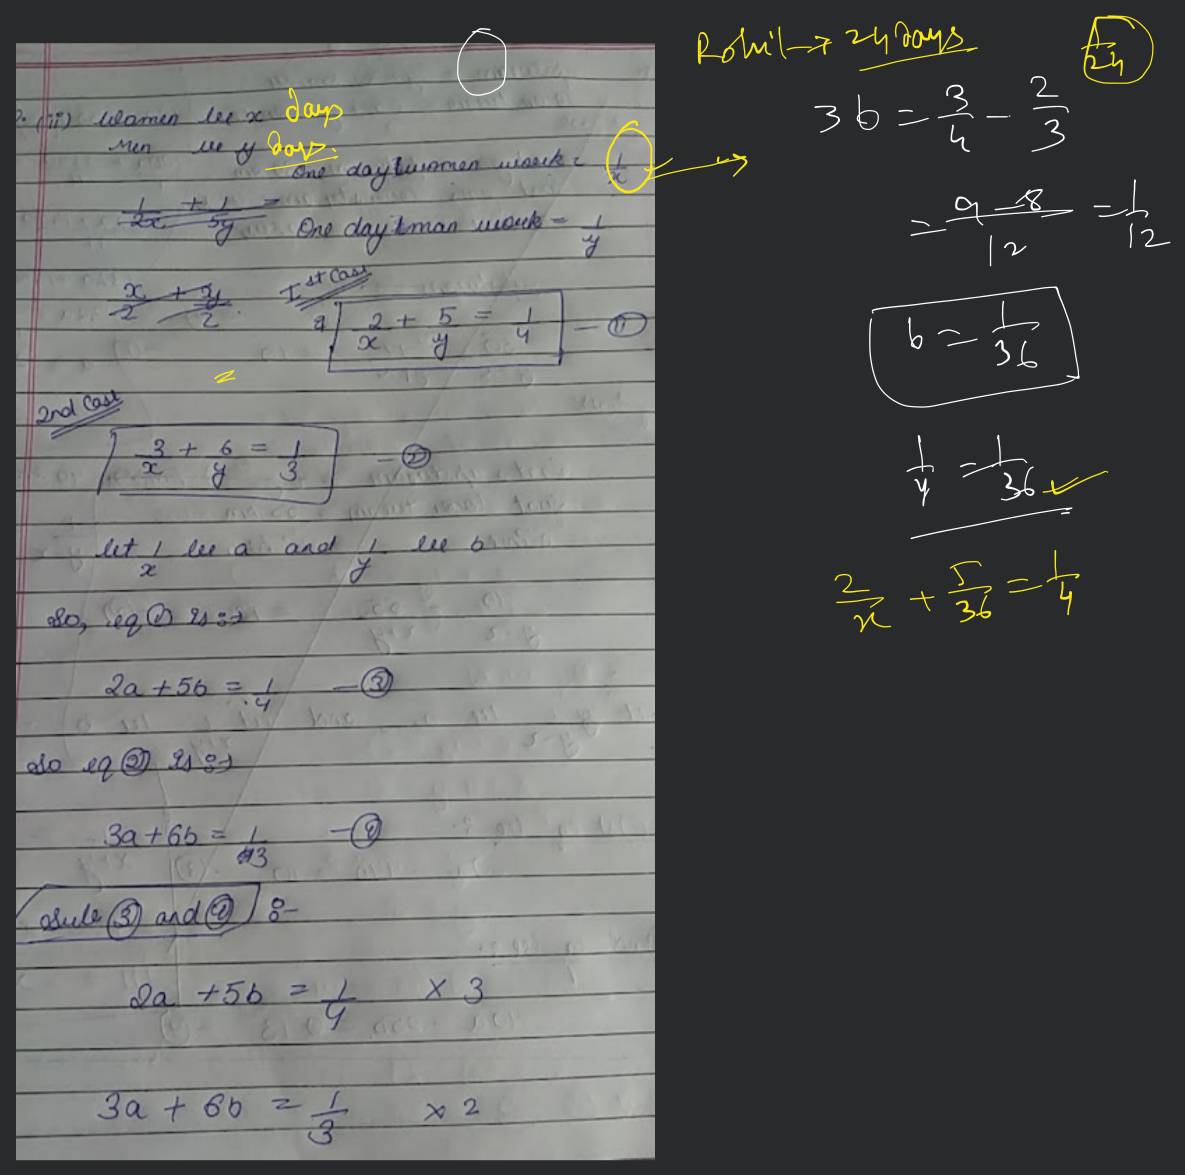 (ii) Women be x days
Men be y days.
One day 1 women work = 1/x
1/2x + 1/5y =
One day 1 man work = 1/y
x/2 + y/2
Ist Case
2/x + 5/y = 1/4 - ①
2nd Case
3/x + 6/y = 1/3 - ②
let 1/x be a and 1/y be b
So, eq ① is :→
2a + 5b = 1/4 - ③
So eq ② is :→
3a + 6b = 1/3 - ④
③ and ④ :-
2a + 5b = 1/4 × 3
3a + 6b = 1/3 × 2
Rohit → 24 days
1/24
3b = 3/4 - 2/3
= 9-8/12 = 1/12
b = 1/36
1/y = 1/36
2/x + 5/36 = 1/4